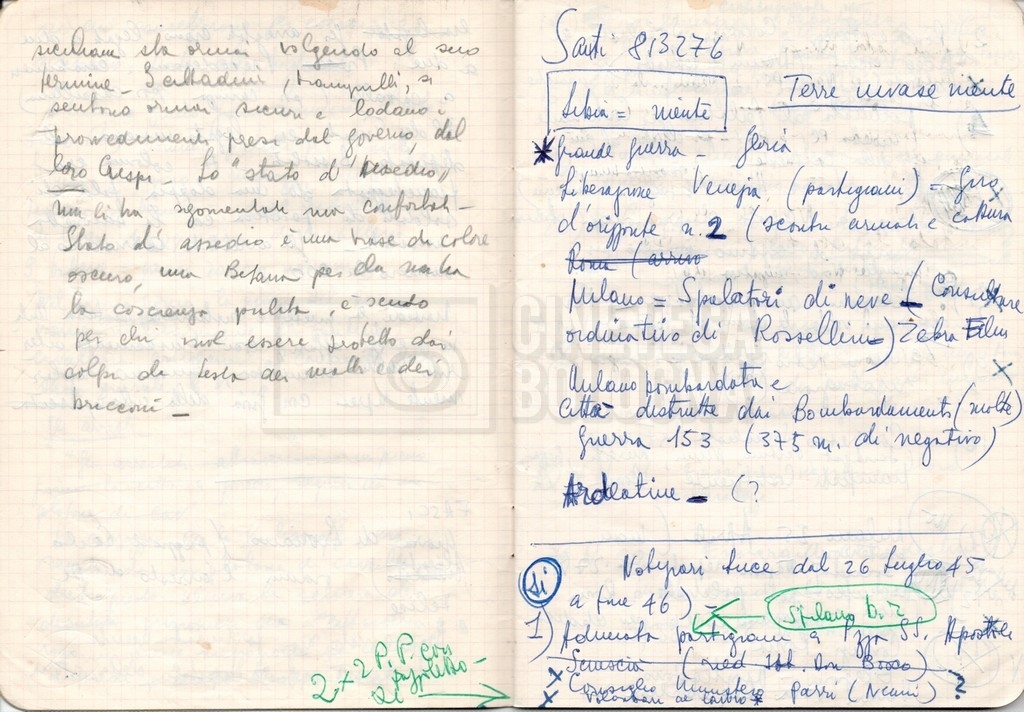 siciliana sta ormai volgendo al suo
termine_ I cittadini, tranquilli, si
sentono ormai sicuri e lodano i
provvedimenti presi dal governo, dal
loro Crispi_ Lo "stato d'assedio"
non li ha sgomentati ma confortati_
Stato d'assedio è una frase di colore
oscuro, una Befana per chi non ha
la coscienza pulita, è scudo
per chi vuol essere protetto dai
colpi di testa dei matti e dei
bricconi_
2 x 2 P.P. con
Santi 813276
Libia = niente
Terre invase niente
Grande guerra_ Gloria
Liberazione Venezia (partigiani) = Giro
d'orizzonte n. 2 (scontri armati e cattura
Roma (arrivo
Milano = Spalatori di neve (Consultare
ordinativo di Rossellini) Zebra Film
Milano bombardata e
Città distrutte dai Bombardamenti (molte)
Guerra 153 (375 m. di negativo)
Ardeatine_ (?
Si
Notiziari Luce dal 26 Luglio 45
a fine 46)
1) Adunata partigiani a Pzza SS. Apostoli
Sciuscià (ved. Don Bosco)
Consiglio Ministero Parri (Nenni) ?
CINETECA
BOLOGNA